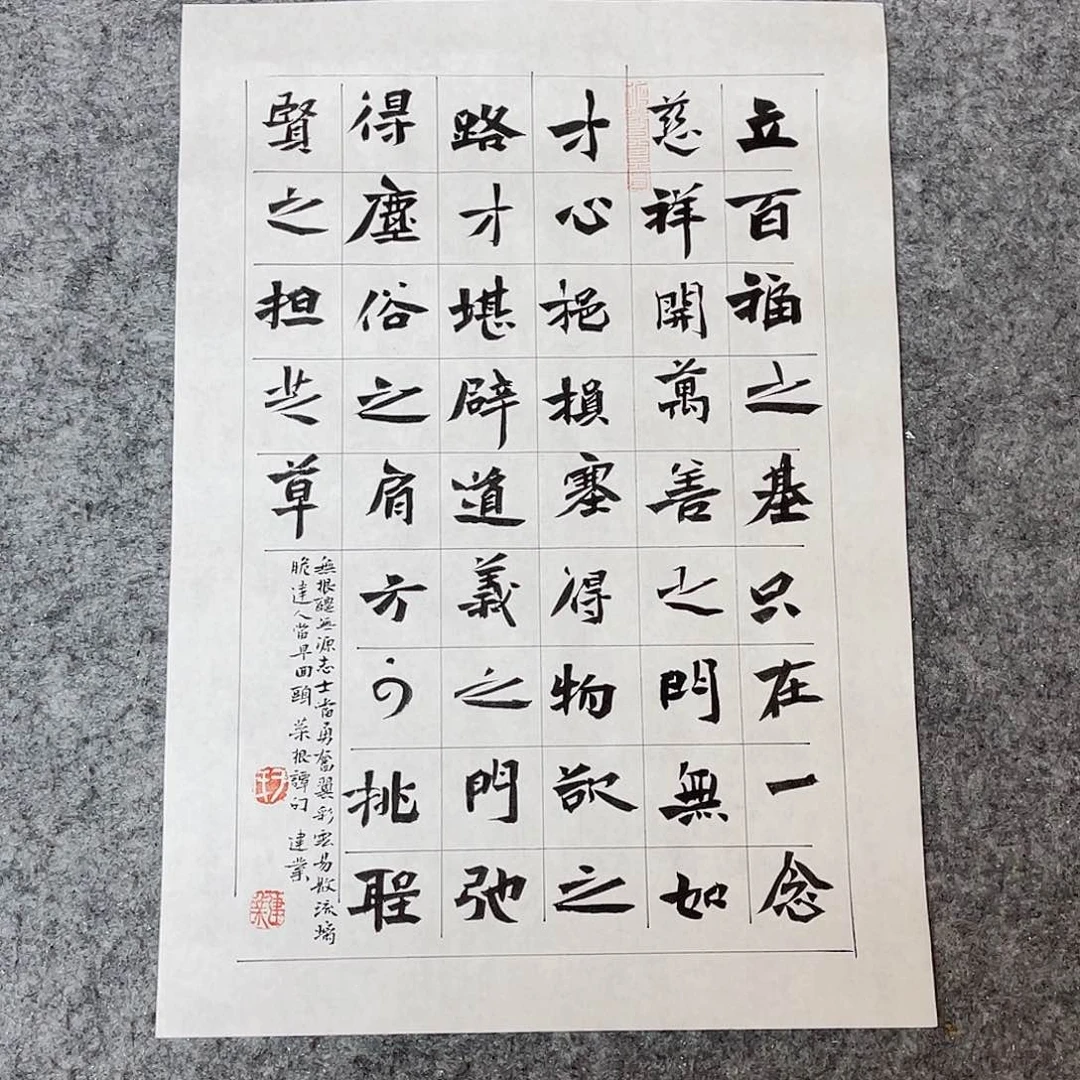 立百福之基只在一念
慈祥開萬善之門無如
寸心挹損塞得物欲之
路才堪辟道義之門弛
得塵俗之肩方可挑聖
賢之担芝草
無根醴無源志士當勇奮翼彩雲易散流璃
脆達人當早回頭 菜根譚句 建業
建業